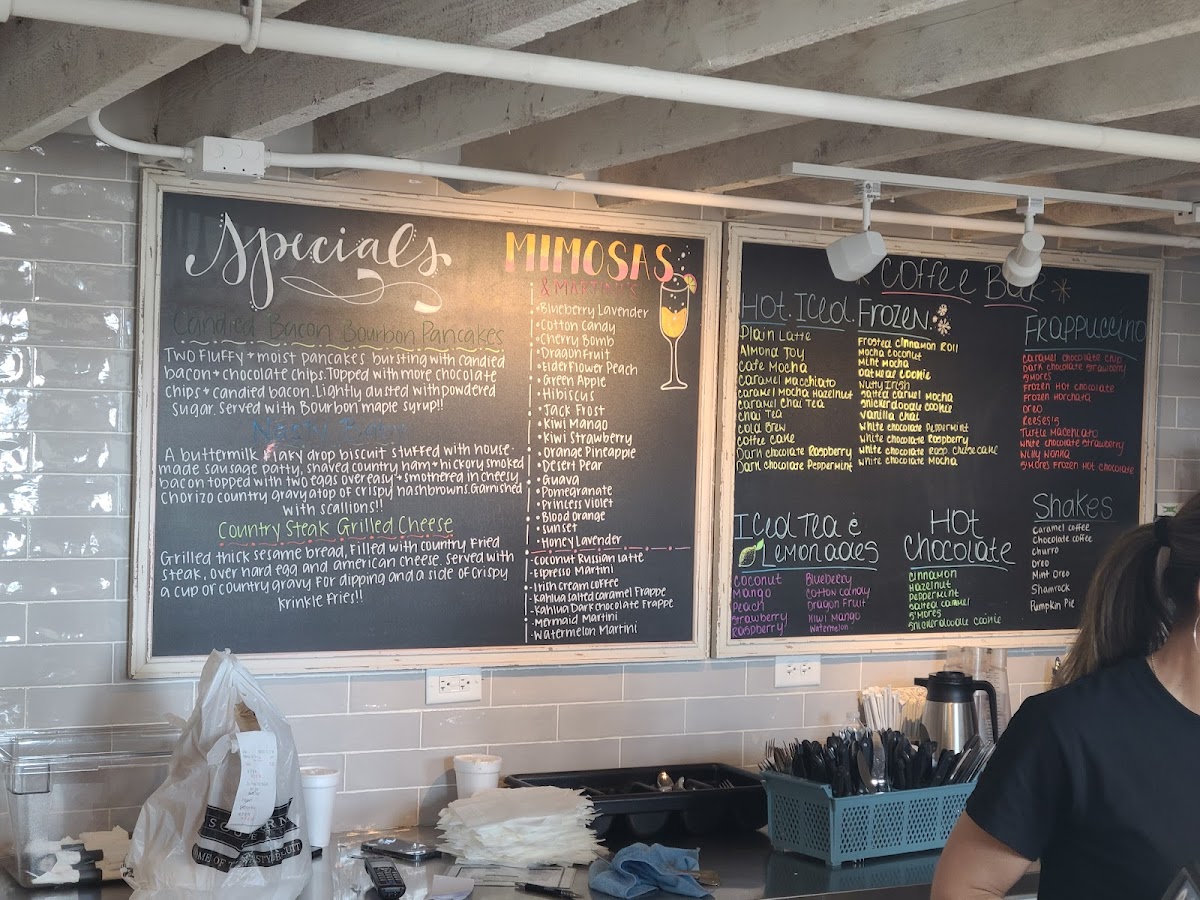 Specials
Candied Bacon Bourbon Pancakes
Two Fluffy + moist pancakes bursting with candied
bacon + chocolate chips. Topped with more chocolate
chips + candied bacon. Lightly dusted with powdered
sugar. served with Bourbon maple syrup!!
A buttermilk flaky drop biscuit stuffed with house-
made sausage patty, shaved country ham + hickory smoked
bacon topped with two eggs overeasy + smothered in cheesy
chorizo country gravy atop of crispy hashbrowns. Garnished
with scallions!!
Country Steak Grilled Cheese
Grilled thick sesame bread, filled with country fried
steak, over hard egg and american cheese. Served with
a cup of country gravy for dipping and a side of crispy
krinkle fries!!
MIMOSAS
& MARTINIS
• Blueberry Lavender
• Cotton Candy
• Cherry Bomb
• Dragonfruit
• Elderflower Peach
• Green Apple
• Hibiscus
• Jack Frost
• Kiwi Mango
• Kiwi Strawberry
• Orange Pineapple
• Desert Pear
• Guava
• Pomegranate
• Princess Violet
• Blood Orange
• Sunset
• Honey Lavender
- Coconut Russian Latte
- Espresso Martini
- Irish cream coffee
- Kahlua salted caramel Frappe
- Kahlua Dark chocolate Frappe
- Mermaid Martini
- Watermelon Martini
Coffee Bar
Hot. Iced. Frozen.
Plain Latte
Almond Joy
Cafe Mocha
Caramel Macchiato
Caramel Mocha Hazelnut
Caramel Chai Tea
Chai Tea
Cold Brew
Coffee Cake
Dark Chocolate Raspberry
Dark Chocolate Peppermint
Frosted Cinnamon Roll
Mocha Coconut
Mint Mocha
Oatmeal Cookie
Nutty Irish
Salted Caramel Mocha
Snickerdoodle Cookie
Vanilla Chai
White Chocolate Peppermint
White Chocolate Raspberry
White Chocolate Rasp. Cheesecake
White Chocolate Mocha
Frappuccino
Caramel Chocolate Chip
Dark Chocolate Strawberry
S'mores
Frozen Hot Chocolate
Frozen Horchata
Oreo
Reese's
Turtle Macchiato
White Chocolate Strawberry
Willy Wonka
S'mores Frozen Hot Chocolate
Iced Tea &
Lemonades
Coconut
Mango
Peach
Strawberry
Raspberry
Blueberry
Cotton Candy
Dragon Fruit
Kiwi Mango
Watermelon
Hot
Chocolate
Cinnamon
Hazelnut
Peppermint
Salted Caramel
S'mores
Snickerdoodle Cookie
Shakes
Caramel Coffee
Chocolate Coffee
Churro
Oreo
Mint Oreo
Shamrock
Pumpkin Pie